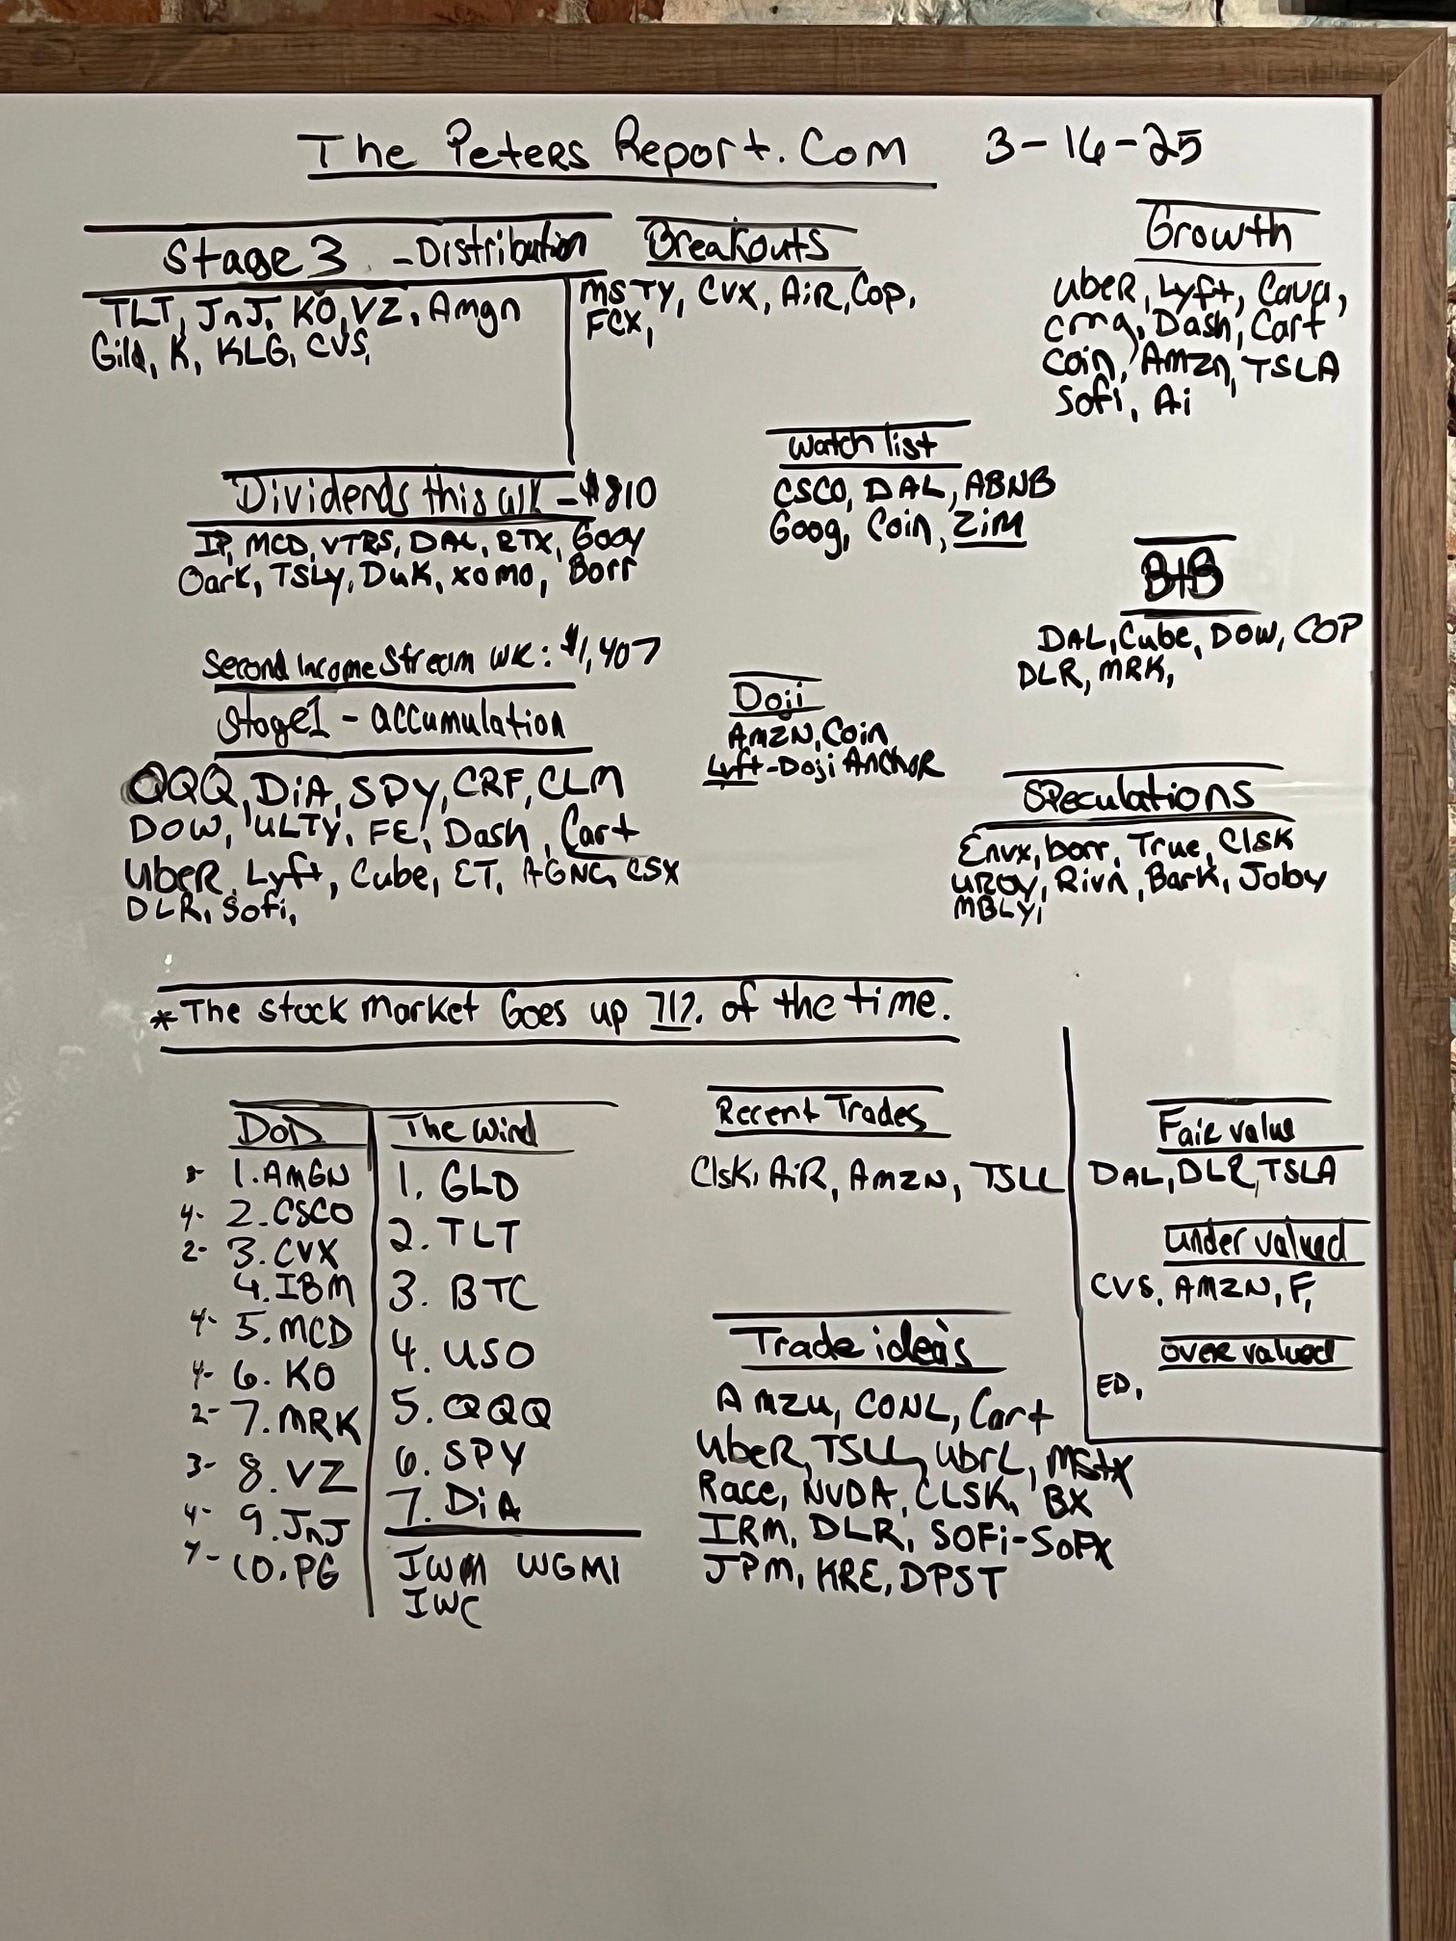 The Peters Report.Com 3-16-25
Stage 3 - Distribution
TLT, JnJ, KO, VZ, Amgn
Gild, K, KLG, CVS,
Breakouts
MSTY, CVX, AiR, COP,
FCX,
Growth
UbeR, Lyft, Cava,
cmg, Dash, Cart
Coin, Amzn, TSLA
Sofi, Ai
Watch list
CSCO, DAL, ABNB
Goog, Coin, ZiM
Dividends this wk - $810
IP, MCD, VTRS, DAL, RTX, Gooy
Oark, TSLY, DuK, xomo, Borr
B+B
DAL, Cube, DOW, COP
DLR, MRK,
Second Income Stream WK: $1,407
Stage1 - accumulation
QQQ, DiA, SPY, CRF, CLM
DOW, ULTY, FE, Dash, Cart
UbeR, Lyft, Cube, ET, AGNC, CSX
DLR, Sofi,
Doji
AMZN, Coin
Lyft-Doji AnchoR
Speculations
Envx, borr, True, Clsk
UROY, Rivn, Bark, Joby
MBLY,
*The stock market Goes up 71% of the time.
DoD
1. AMGN
4- 2. CSCO
2- 3. CVX
4. IBM
4- 5. MCD
4- 6. KO
2- 7. MRK
3- 8. VZ
4- 9. JnJ
10. PG
The Wind
1. GLD
2. TLT
3. BTC
4. USO
5. QQQ
6. SPY
7. DiA
IWM WGMI
IWC
Recent Trades
Clsk, AiR, AmZN, TSLL
Trade idea's
Amzu, CONL, Cart
UbeR, TSLL, UbrL, MStX
Race, NVDA, CLSK, BX
IRM, DLR, SOFi-SoFX
JPM, KRE, DPST
Fair value
DAL, DLR, TSLA
under valued
CVS, AMZN, F,
over valued
ED,